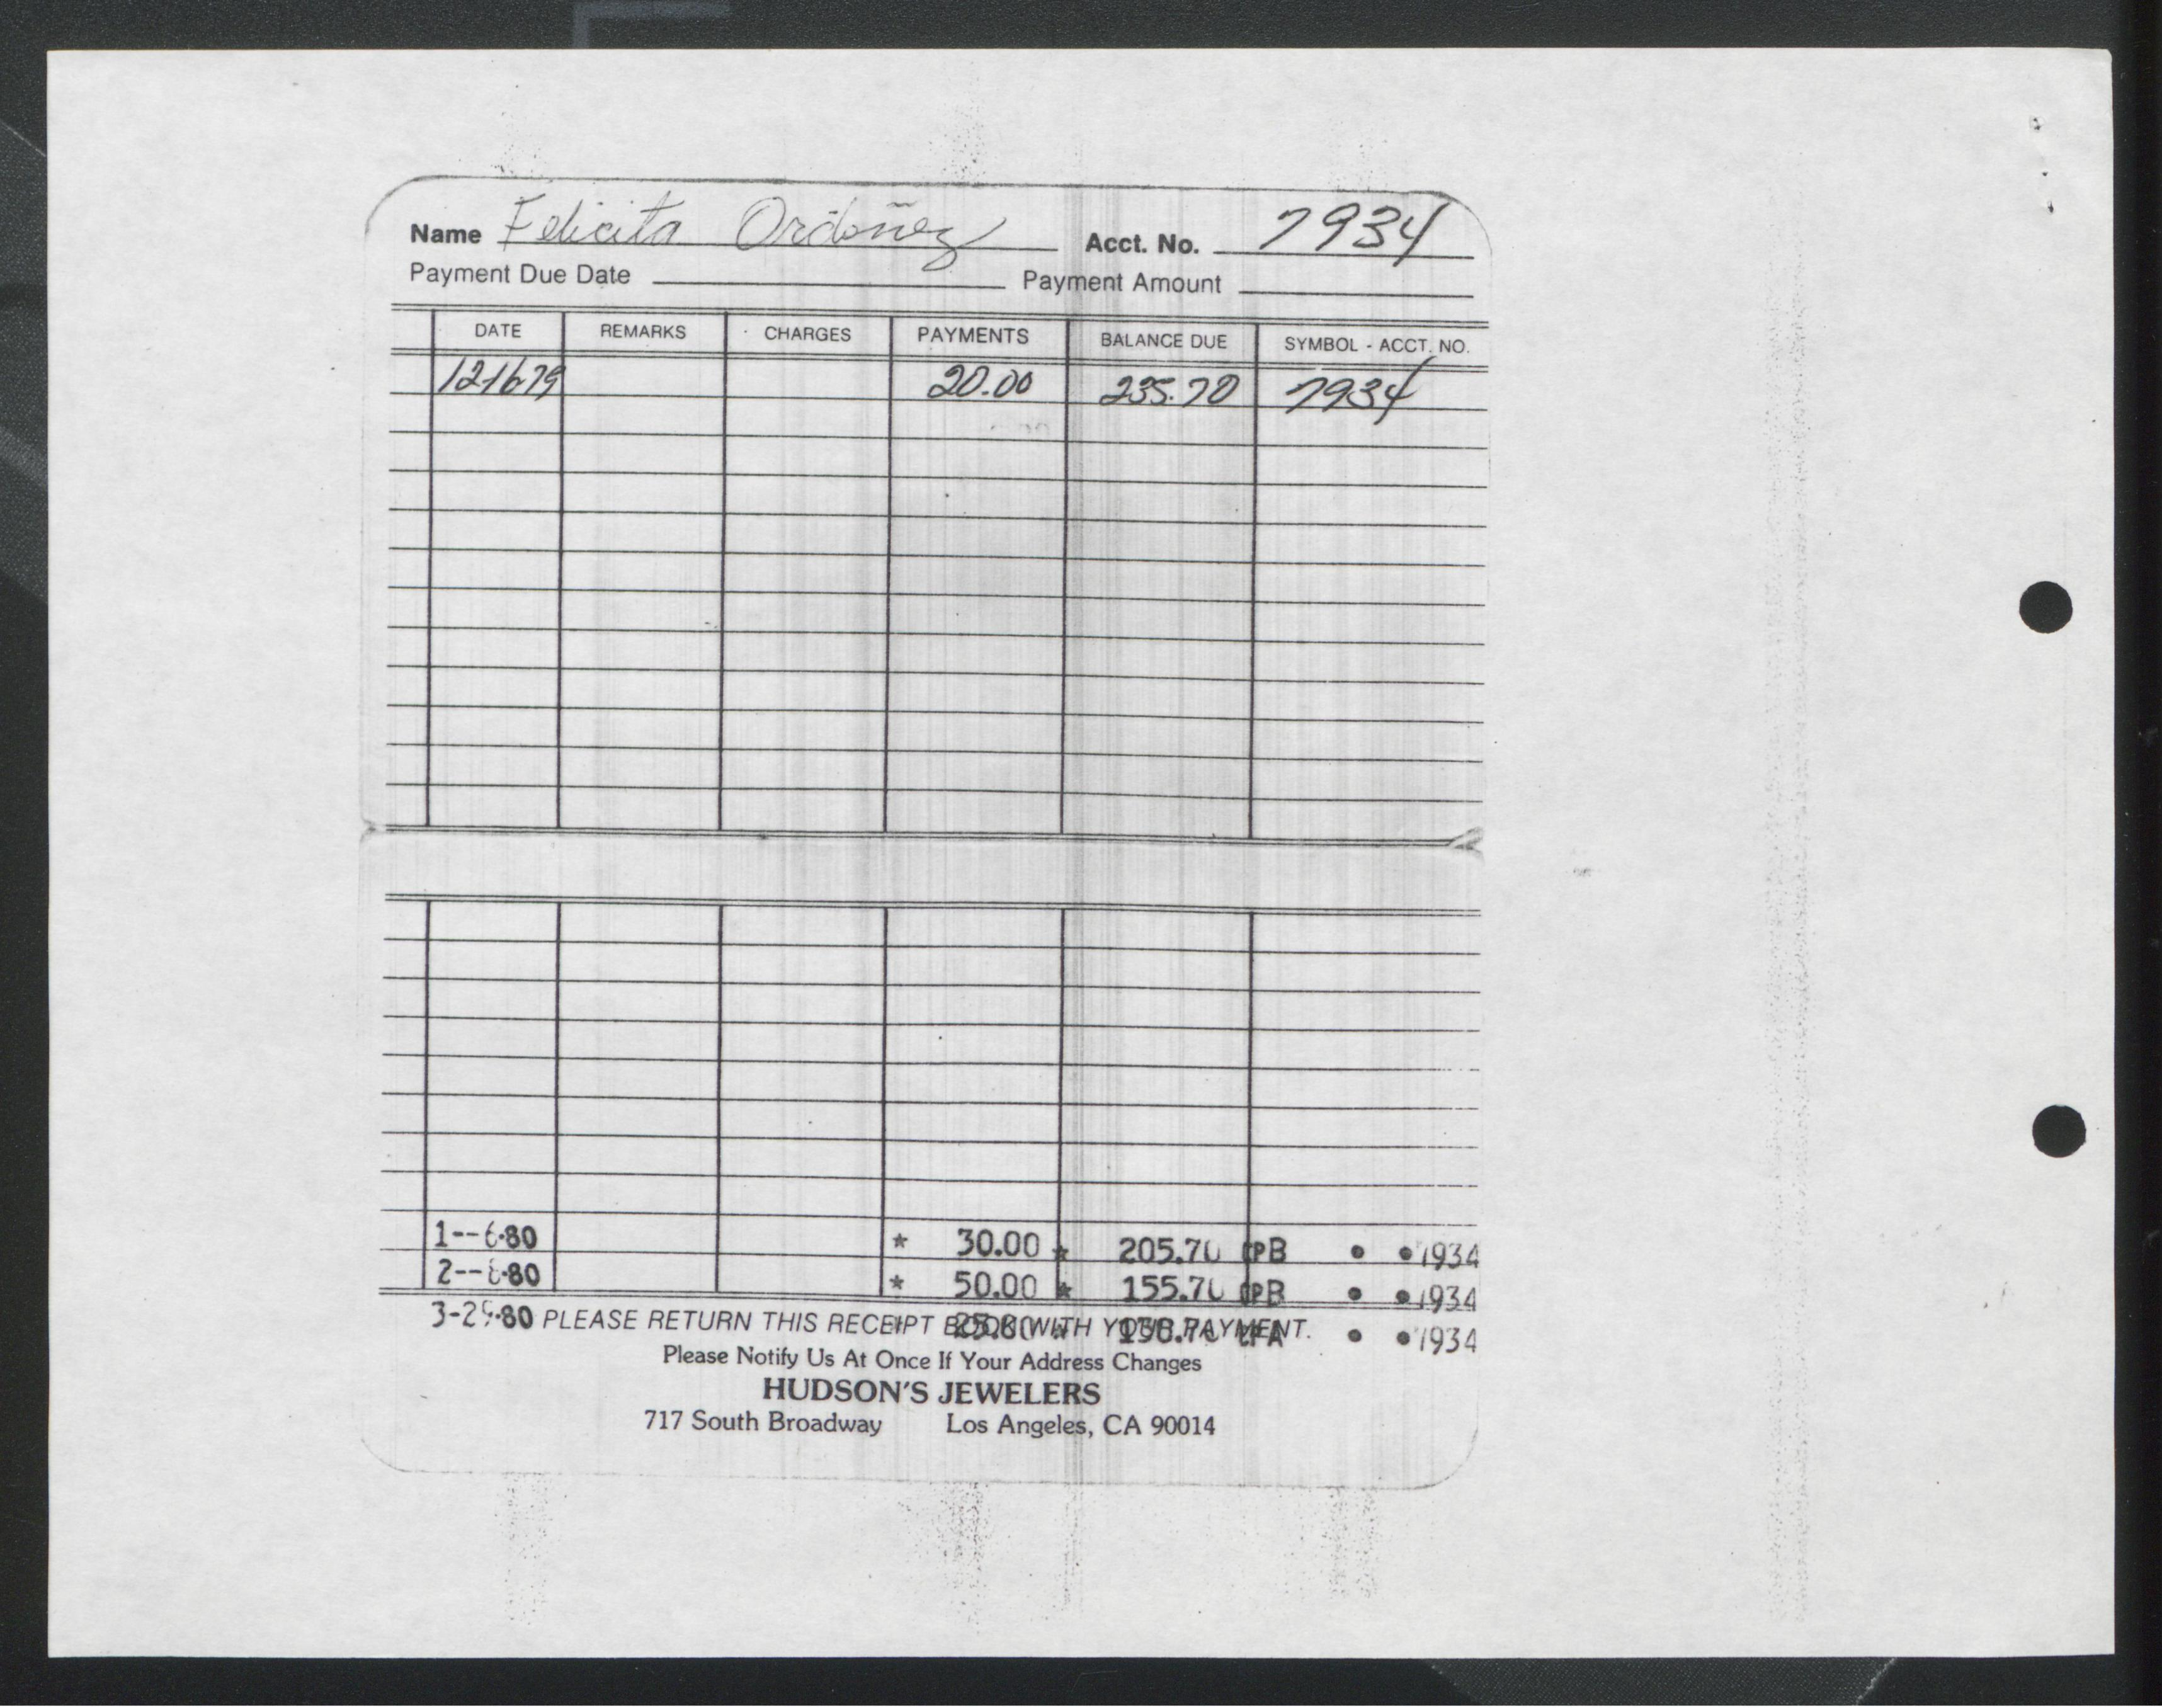 Name Felicita Ordoñez Acct. No. 7934
Payment Due Date Payment Amount
DATE REMARKS CHARGES PAYMENTS BALANCE DUE SYMBOL - ACCT. NO.
121679 20.00 235.70 7934
1--6-80 * 30.00 * 205.70 PB • •7934
2-- 80 * 50.00 * 155.70 PB • •7934
3-29-80 PLEASE RETURN THIS RECEIPT BOOK WITH YOUR PAYMENT.
25.00 * 130.70 PA • •7934
Please Notify Us At Once If Your Address Changes
HUDSON'S JEWELERS
717 South Broadway Los Angeles, CA 90014